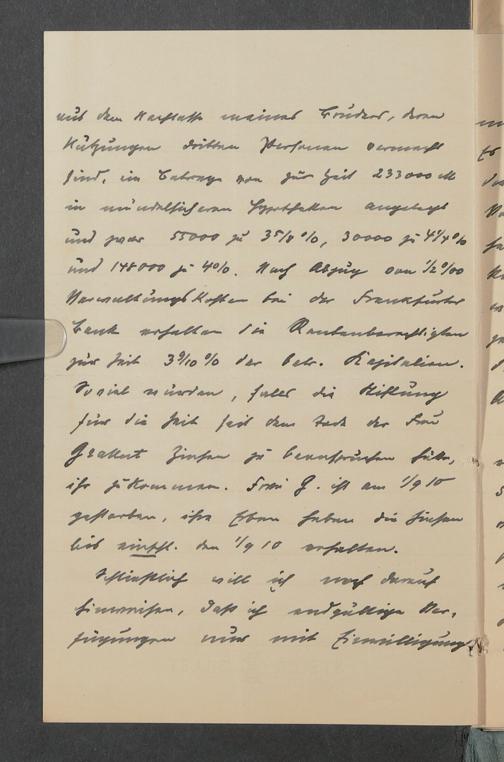 aus dem Nachlasse meines Bruders, deren
Nutzungen dritten Personen vermacht
sind, im Betrage von zur Zeit 233000 M
in mündelsicheren Hypotheken angelegt
und zwar 55000 zu 3 5/8 %, 30000 zu 4 1/4 %
und 148000 zu 4%. Nach Abzug von 1/2 %00
Verwaltungskosten bei der Frankfurter
Bank erhalten die Rentenberechtigten
zur Zeit 3 9/10 % der betr. Kapitalien.
Soviel würden, falls die Stiftung
für die Zeit seit dem Tode der Frau
Zinsen zu beanspruchen hätte,
ihr zukommen. Frau G. ist am 1/9 10
gestorben, ihre Erben haben die Zinsen
bis einschl. den 1/9 10 erhalten.
Schließlich will ich noch darauf
hinweisen, daß ich endgültige Ver-
fügungen nur mit Einwilligung